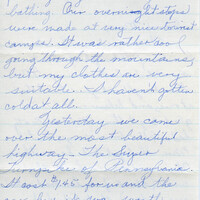 bathing. Our overnight stops
were made at very nice tourist
camps. It was rather cool
going through the mountains,
but my clothes are very
suitable. I haven't gotten
cold at all.
Yesterday we came
over the most beautiful
highway - The Super
Turnpike of Pennsylvania.
It cost $1.45 for us and the